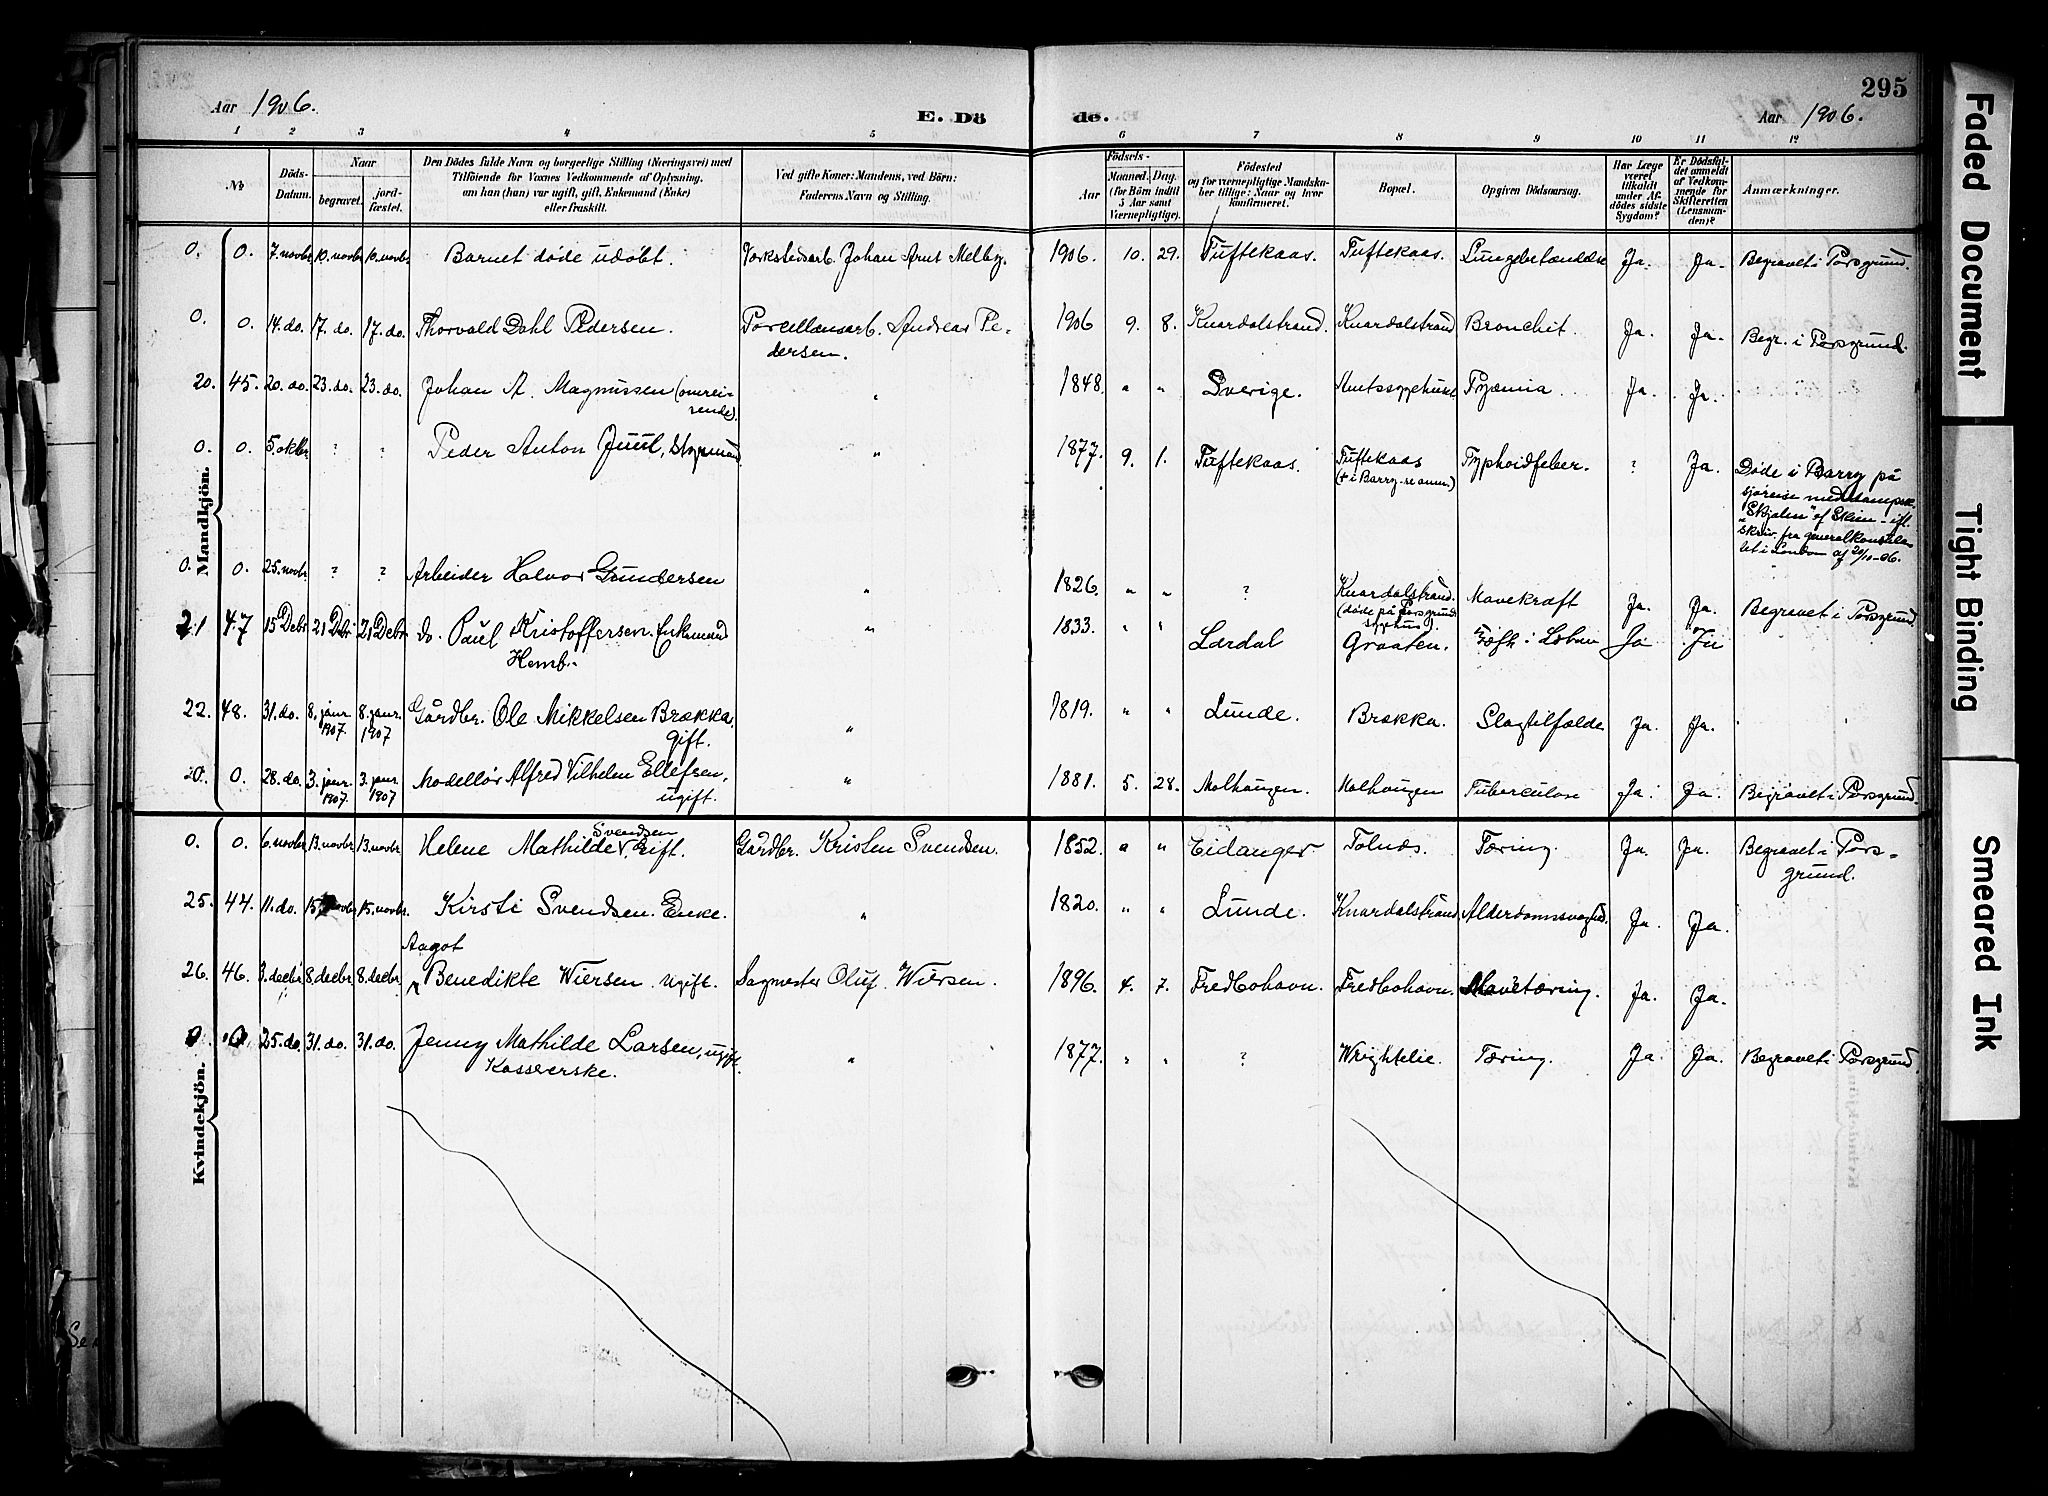 295
Aar 1906. E. Dö de. Aar 1906.
1 2 3 4 5 6 7 8 9 10 11 12
№
Döds-Datum.
Naar
begravet.
jord-fæstet.
Den Dödes fulde Navn og borgerlige Stilling (Næringsvei) med
Tilföiende for Voxnes Vedkommende af Oplysning,
om han (hun) var ugift, gift, Enkemand (Enke)
eller fraskilt.
Ved gifte Koner: Mandens, ved Börn:
Faderens Navn og Stilling.
Födsels-
Aar
Maaned. Dag.
(for Börn indtil
5 Aar samt
Værnepligtige).
Födested
og for værnepligtige Mandska-
ber tillige: Naar og hvor
konfirmeret.
Bopæl.
Opgiven Dödsaarsag.
Har Læge
været
tilkaldt
under Af-
dödes sidste
Sygdom?
Er Dödsfal-
det anmeldt
af Vedkom-
mende for
Skifteretten
(Lensman-
den)?
Anmærkninger.
Mandkjön.
0. 0. 7. novbr 10. novbr. 10. novbr. Barnet døde udøbt. Johan Arnt Melby. 1906. 10. 29. Tuftekaas. Tuftekaas. Lungebetændelse Ja. Ja. Begravet i Porsgrund.
0. 0. 14. do. 17. do. 17. do. Thorvald Dahl Pedersen. Porcellænsarb. Andreas Pe-
dersen. 1906 9. 8. Knardalstrand. Knardalstrand Bronchit. Ja. Ja. Begr. i Porsgrund.
20. 45. 20. do. 23. do. 23. do. Johan A. Magnussen (omrei-
sende). " 1848. " " Sverige. Amtssygehuset Pyæmia Ja. Ja.
0. 0. 5. oktbr ? ? Peder Anton Juul, Styrmand " 1877. 9. 1. Tuftekaas. Tuftekaas
Typhoidfeber. ? Ja. Døde i Barry på
sjøreise med dampsk.
"Skjalm" af Skien - ifl.
skriv. fra generalkonsula-
tet i London af 20/10-06.
0. 0. 25. novbr ? ? Arbeider Halvor Gundersen " 1826. " " ? Knardalstrand.
(døde på Porsgrund
sygehus). Mavekræft Ja. Ja. Begravet i Porsgrund
21 47 15 Debr 21 Debr 21 Debr do. Paul Kristoffersen. Enkemand
" 1833. " " Lardal Graaten. Ja Ja
22. 48. 31. do. 8. janr. 1907. 8. janr. 1907 Gårdbr. Ole Mikkelsen Brækka,
gift. " 1819. " " Lunde. Brækka. Slagtilfælde Ja. Ja.
0. 0. 28. do. 3. janr. 1907. 3. janr. 1907 Modellør Alfred Vilhelm Ellefsen,
ugift. " 1881. 5. 28. Molhaugen. Molhaugen Tuberculose Ja. Ja. Begravet i Porsgrund.
Kvindekjön.
0. 0. 6. novbr 13. novbr 13. novbr Helene Mathilde Svendsen, Gift. Gårdbr. Kristen Svendsen. 1852. " " Eidanger Tolnæs. Tæring. Ja. Ja. Begravet i Pors-
grund.
25. 44. 11. do. 15. novbr 15. novbr. Kirsti Svendsen. Enke. " 1820. " " Lunde. Knardalstrand Alderdomssvaghed. Ja. Ja.
26. 46. 3. decbr 8. decbr 8. decbr Aagot
Benedikte Wiersen. ugift. Sagmester Oluf Wiersen. 1896. 4. 7. Fredbohavn. Fredbohavn. Mavetæring. Ja. Ja.
0. 0. 25. do. 31. do. 31. do. Jenny Mathilde Larsen, ugift.
Kassererske. " 1877. " " ? Wrightelie. Tæring. Ja. Ja. Begravet i Porsgrund.
Faded Document
Tight Binding
Smeared Ink